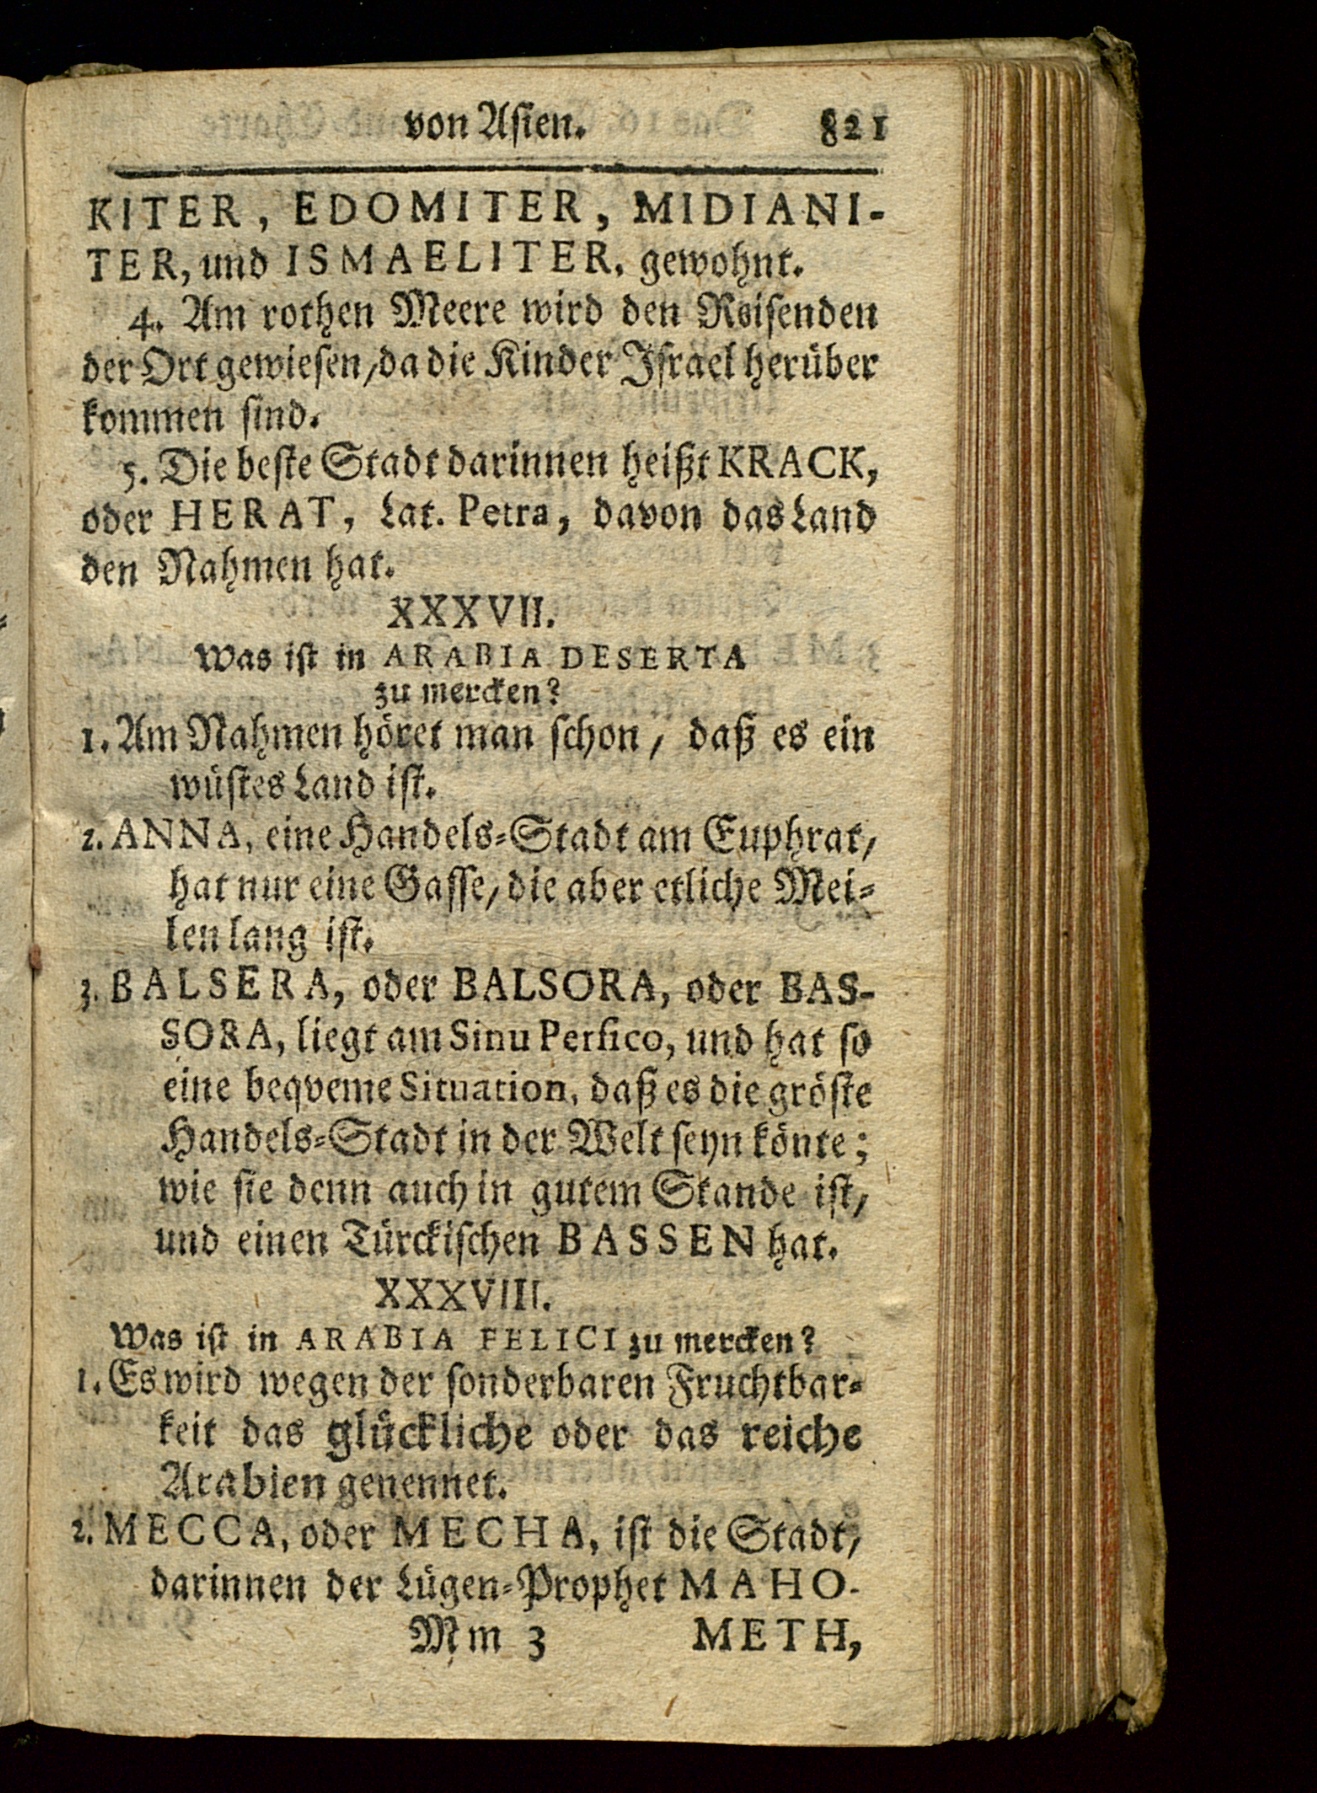 von Asien. 821
KITER, EDOMITER, MIDIANI-
TER, und ISMAELITER, gewohnt.
4. Am rothen Meere wird den Reisenden
der Ort gewiesen/ da die Kinder Israel herüber
kommen sind.
5. Die beste Stadt darinnen heißt KRACK,
oder HERAT, Lat. Petra, davon das Land
den Nahmen hat.
XXXVII.
Was ist in ARABIA DESERTA
zu mercken?
1. Am Nahmen höret man schon/ daß es ein
wüstes Land ist.
2. ANNA, eine Handels-Stadt am Euphrat/
hat nur eine Gasse/ die aber etliche Mei-
len lang ist.
3. BALSERA, oder BALSORA, oder BAS-
SORA, liegt am Sinu Persico, und hat so
eine beqveme Situation, daß es die gröste
Handels-Stadt in der Welt seyn könte;
wie sie denn auch in gutem Stande ist/
und einen Türckischen BASSEN hat.
XXXVIII.
Was ist in ARABIA FELICI zu mercken?
1. Es wird wegen der sonderbaren Fruchtbar-
keit das glückliche oder das reiche
Arabien genennet.
2. MECCA, oder MECHA, ist die Stadt/
darinnen der Lügen-Prophet MAHO-
Mm 3 METH,